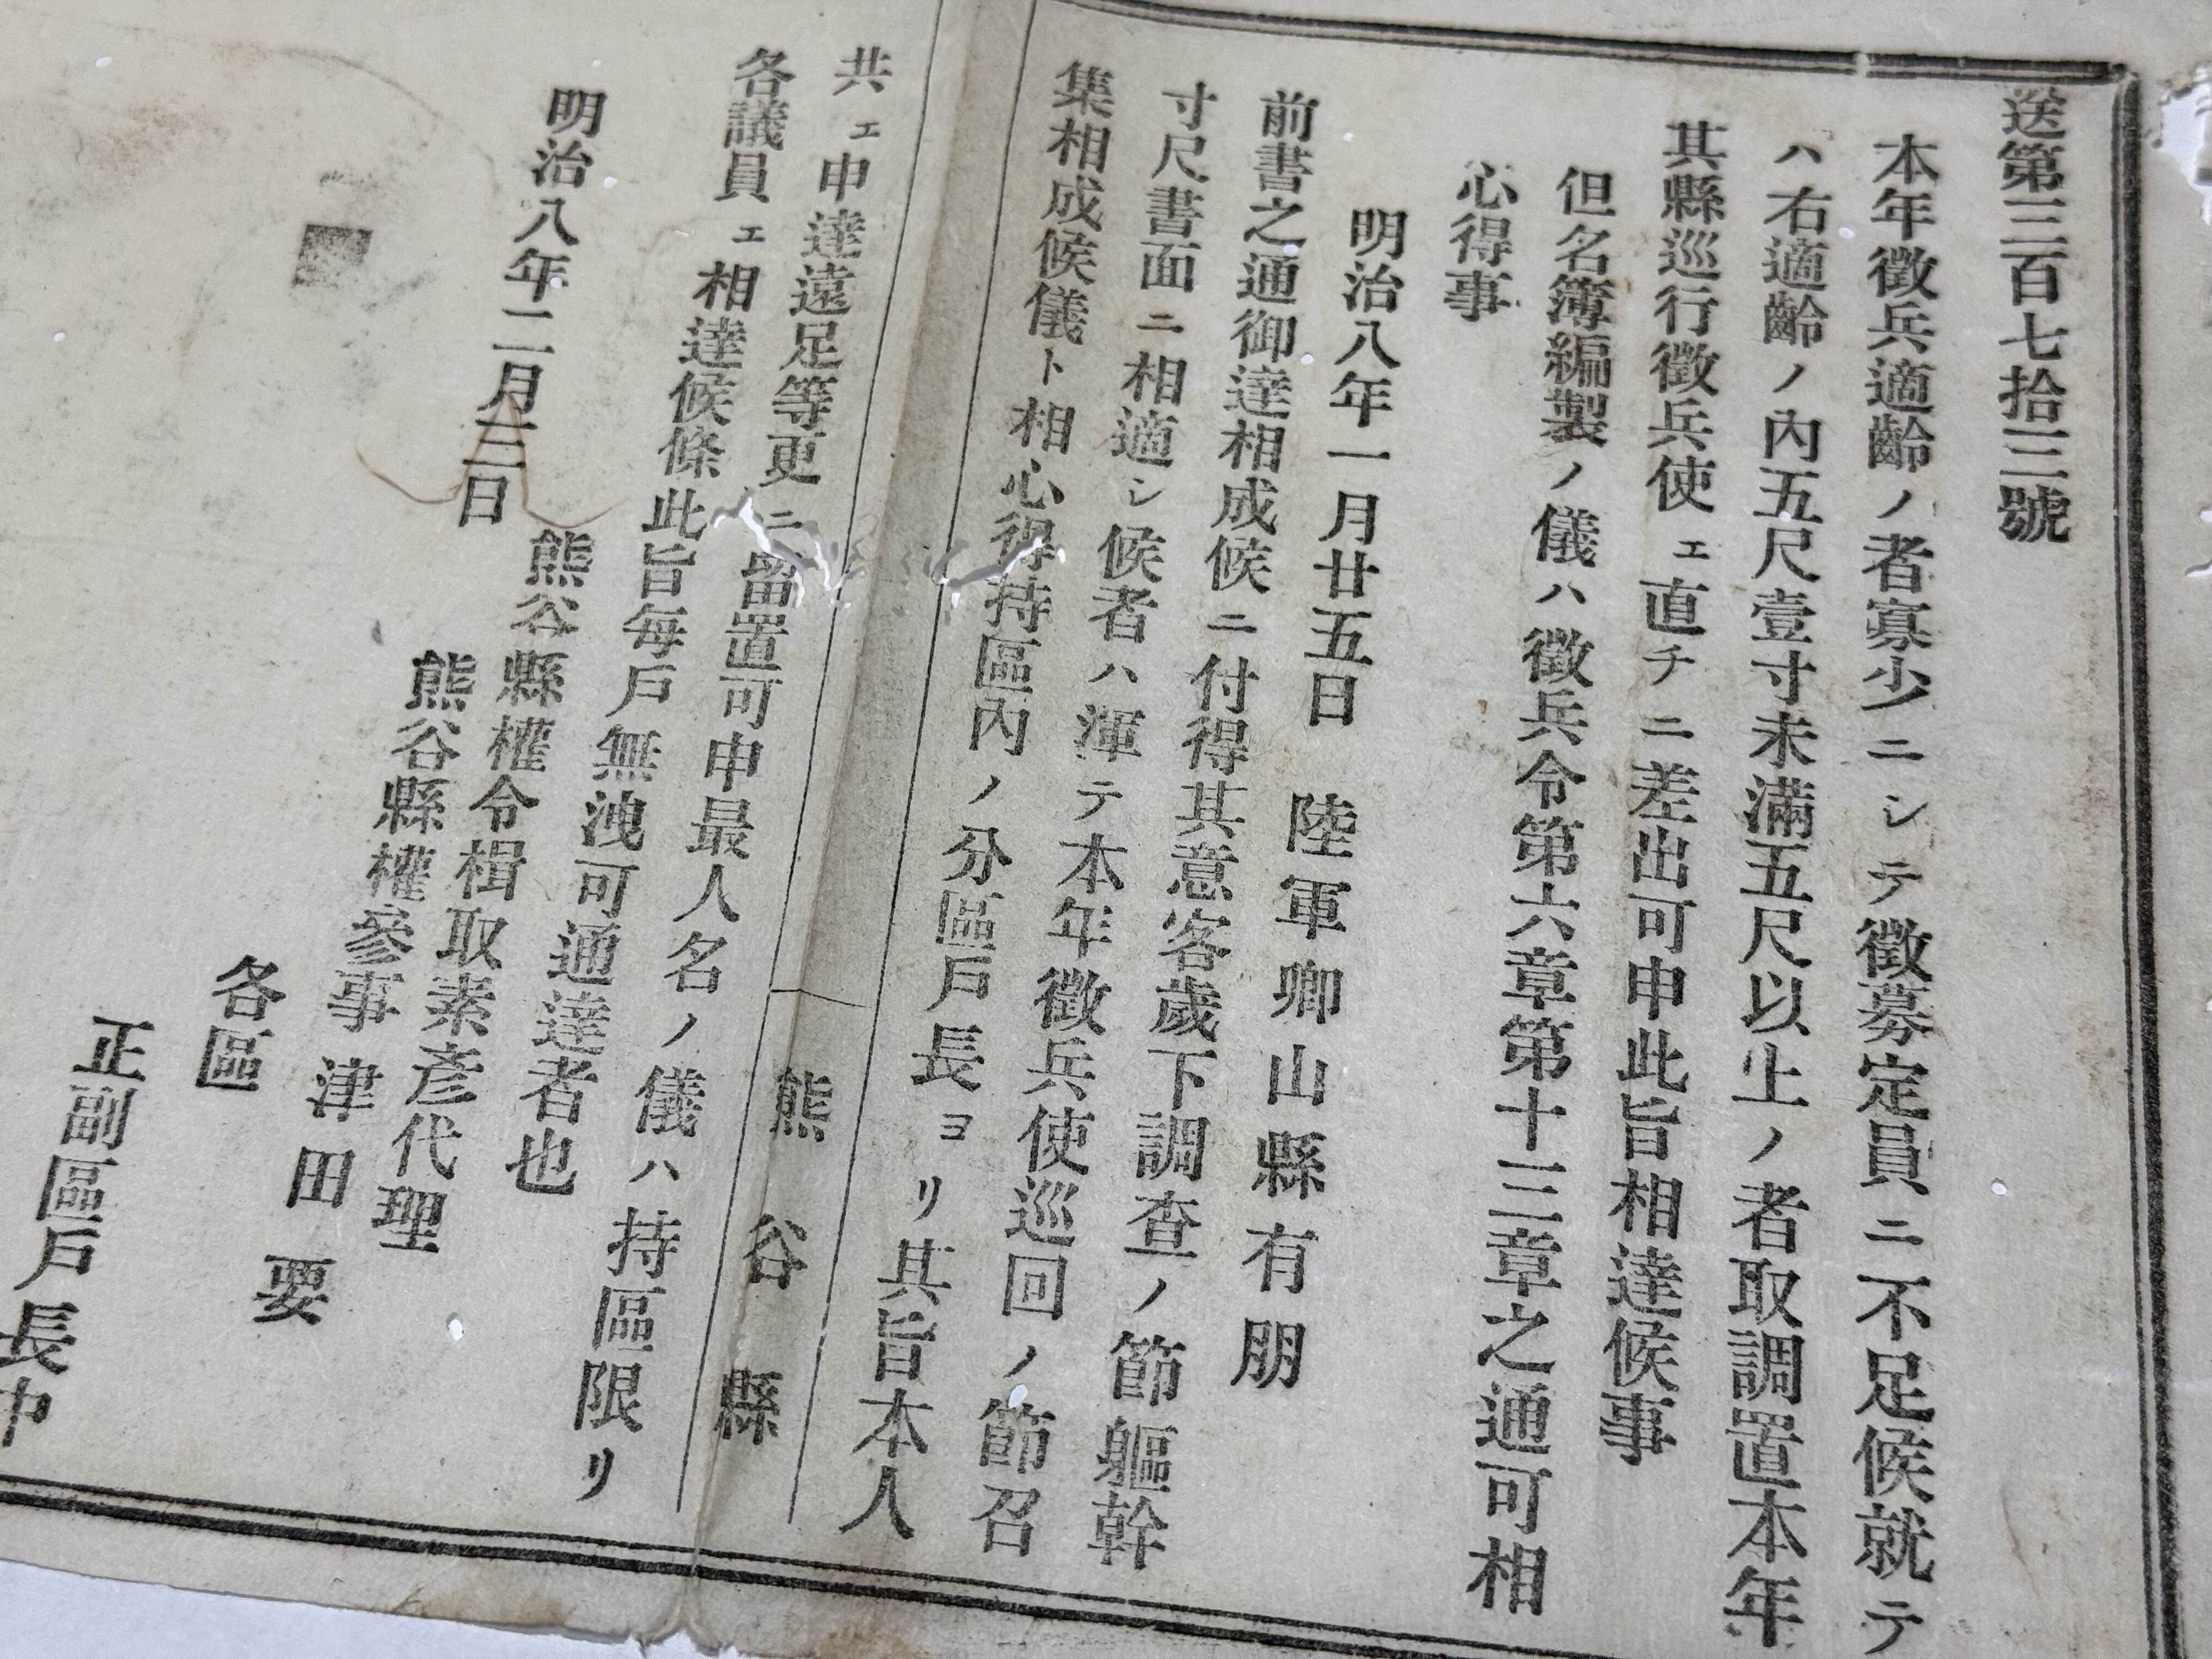 送第三百七拾三號
本年徵兵適齡ノ者寡少ニシテ徵募定員ニ不足候就テ
ハ右適齡ノ內五尺壹寸未滿五尺以上ノ者取調置本年
其縣巡行徵兵使ェ直チニ差出可申此旨相達候事
但名簿編製ノ儀ハ徵兵令第六章第十三章之通可相
心得事
明治八年一月廿五日 陸軍卿山縣有朋
前書之通御達相成候ニ付得其意客歲下調查ノ節軀幹
寸尺書面ニ相適シ候者ハ渾テ本年徵兵使巡回ノ節召
集相成候儀ト相心得持區內ノ分區戶長ヨリ其旨本人
熊谷縣
共ェ申達遠足等更ニ留置可申最人名ノ儀ハ持區限リ
各議員ェ相達候條此旨每戶無洩可通達者也
明治八年二月三日
熊谷縣權令楫取素彥代理
熊谷縣權參事津田要
各區
正副區戶長中